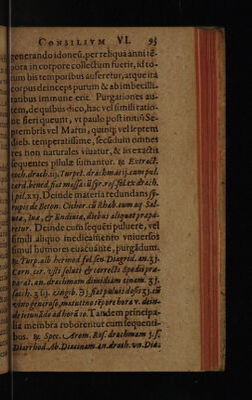 CONSILIVM VI. 93
generando idoneū, per reliqua anni tē-
pora in corpore collectum fuerit, id to-
tum bis temporibus auferetur, atque ita
corpus deinceps purum & ab imbecilli-
tatibus immune erit. Purgationes au-
tem, de quibus dico, hac vel simili ratio-
ne fieri queunt, vt paulo post initiū Se-
ptembris vel Martij, quinq; vel septem
dieb. temperatissime, secundum omnes
res non naturales viuatur, & his exactis
sequentes pilulæ sumantur. ℞ Extract.
cch. drach. ij. Turpet. drachmas ij. cum pul.
card. bened. fiat massa cū syr. ros. sol. ex drach.
j. pil. xxj. Deinde materia redundans sy-
rupis de Beton. Cichor. cū Rheab. cum aq. Sal-
uiæ, Iuæ, & Endiuiæ, diebus aliquot præpa-
retur. Deinde cum sequēti puluere, vel
simili aliquo medicamento vniuersos
simul humores euacuante, purgādum.
℞ Turp. alb. hermod. fol. sen. Diagrid. an. ʒj.
Corn. cer. vsti soluti & correcti Spodii præ-
parat. an. drachmam dimidiam cinam. ʒ
sacch. ʒ iij. zingib. ℈j. fiat puluis dosis ʒj. cū
vino generoso, matutino tēpore hora v. dein-
de ieiunādo ad horā 10. Tandem principa-
lia membra roborentur cum sequenti-
bus. ℞ Spec. Arom. Ros. drachmam j. s.
Diarrhod. Ab. Diacinam. an. drach. vn. Dia-